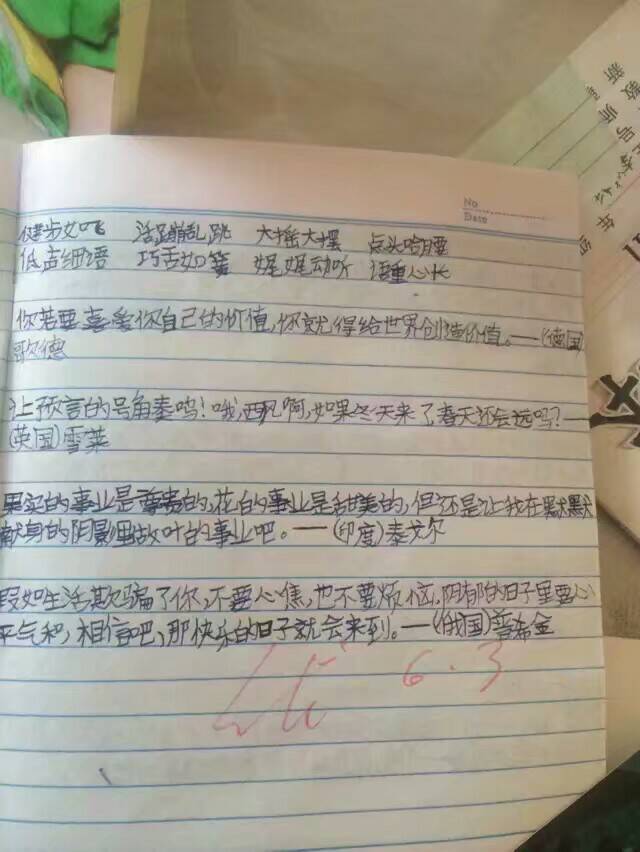 No
Date
健步如飞 活蹦乱跳 大摇大摆 点头哈腰
低声细语 巧舌如簧 娓娓动听 语重心长
你若要喜爱你自己的价值,你就得给世界创造价值。——(德国)
歌德
让预言的号角奏鸣!哦,西风啊,如果冬天来了,春天还会远吗?——
(英国)雪莱
果实的事业是尊贵的,花的事业是甜美的,但还是让我在默默
献身的阴影里做叶的事业吧。——(印度)泰戈尔
假如生活欺骗了你,不要心焦,也不要烦恼,阴郁的日子里要心
平气和,相信吧,那快乐的日子就会来到。——(俄国)普希金
6.3
新教师